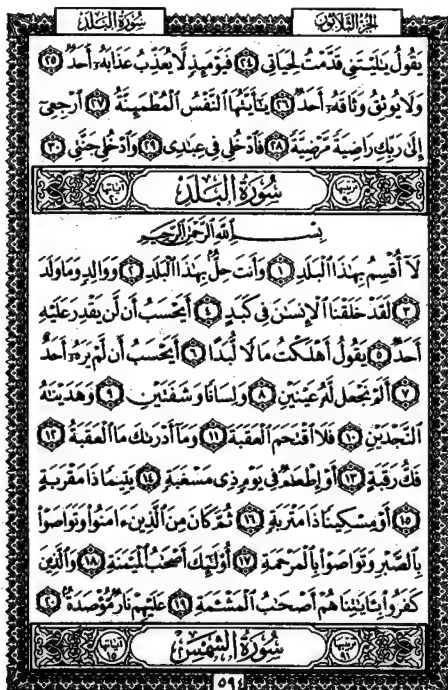 سُورَةُ البَلَدِ الجُزءُ الثَّلَاثُونَ
يَقُولُ يَٰلَيْتَنِى قَدَّمْتُ لِحَيَاتِى ﴿٢٤﴾ فَيَوْمَئِذٍ لَّا يُعَذِّبُ عَذَابَهُۥٓ أَحَدٌ ﴿٢٥﴾
وَلَا يُوثِقُ وَثَاقَهُۥٓ أَحَدٌ ﴿٢٦﴾ يَٰٓأَيَّتُهَا ٱلنَّفْسُ ٱلْمُطْمَئِنَّةُ ﴿٢٧﴾ ٱرْجِعِىٓ
إِلَىٰ رَبِّكِ رَاضِيَةً مَّرْضِيَّةً ﴿٢٨﴾ فَٱدْخُلِى فِى عِبَٰدِى ﴿٢٩﴾ وَٱدْخُلِى جَنَّتِى ﴿٣٠﴾
ترتيبها ٩٠ سُورَةُ البَلَدِ آياتها ٢٠
بِسْمِ ٱللَّهِ ٱلرَّحْمَٰنِ ٱلرَّحِيمِ
لَآ أُقْسِمُ بِهَٰذَا ٱلْبَلَدِ ﴿١﴾ وَأَنتَ حِلٌّۢ بِهَٰذَا ٱلْبَلَدِ ﴿٢﴾ وَوَالِدٍ وَمَا وَلَدَ
﴿٣﴾ لَقَدْ خَلَقْنَا ٱلْإِنسَٰنَ فِى كَبَدٍ ﴿٤﴾ أَيَحْسَبُ أَن لَّن يَقْدِرَ عَلَيْهِ
أَحَدٌ ﴿٥﴾ يَقُولُ أَهْلَكْتُ مَالًا لُّبَدًا ﴿٦﴾ أَيَحْسَبُ أَن لَّمْ يَرَهُۥٓ أَحَدٌ
﴿٧﴾ أَلَمْ نَجْعَل لَّهُۥ عَيْنَيْنِ ﴿٨﴾ وَلِسَانًا وَشَفَتَيْنِ ﴿٩﴾ وَهَدَيْنَٰهُ
ٱلنَّجْدَيْنِ ﴿١٠﴾ فَلَا ٱقْتَحَمَ ٱلْعَقَبَةَ ﴿١١﴾ وَمَآ أَدْرَىٰكَ مَا ٱلْعَقَبَةُ ﴿١٢﴾
فَكُّ رَقَبَةٍ ﴿١٣﴾ أَوْ إِطْعَٰمٌ فِى يَوْمٍ ذِى مَسْغَبَةٍ ﴿١٤﴾ يَتِيمًا ذَا مَقْرَبَةٍ
﴿١٥﴾ أَوْ مِسْكِينًا ذَا مَتْرَبَةٍ ﴿١٦﴾ ثُمَّ كَانَ مِنَ ٱلَّذِينَ ءَامَنُوا۟ وَتَوَاصَوْا۟
بِٱلصَّبْرِ وَتَوَاصَوْا۟ بِٱلْمَرْحَمَةِ ﴿١٧﴾ أُو۟لَٰٓئِكَ أَصْحَٰبُ ٱلْمَيْمَنَةِ ﴿١٨﴾ وَٱلَّذِينَ
كَفَرُوا۟ بِـَٔايَٰتِنَا هُمْ أَصْحَٰبُ ٱلْمَشْـَٔمَةِ ﴿١٩﴾ عَلَيْهِمْ نَارٌ مُّؤْصَدَةٌۢ ﴿٢٠﴾
ترتيبها ٩١ سُورَةُ الشَّمْسِ آياتها ١٥
٥٩٤